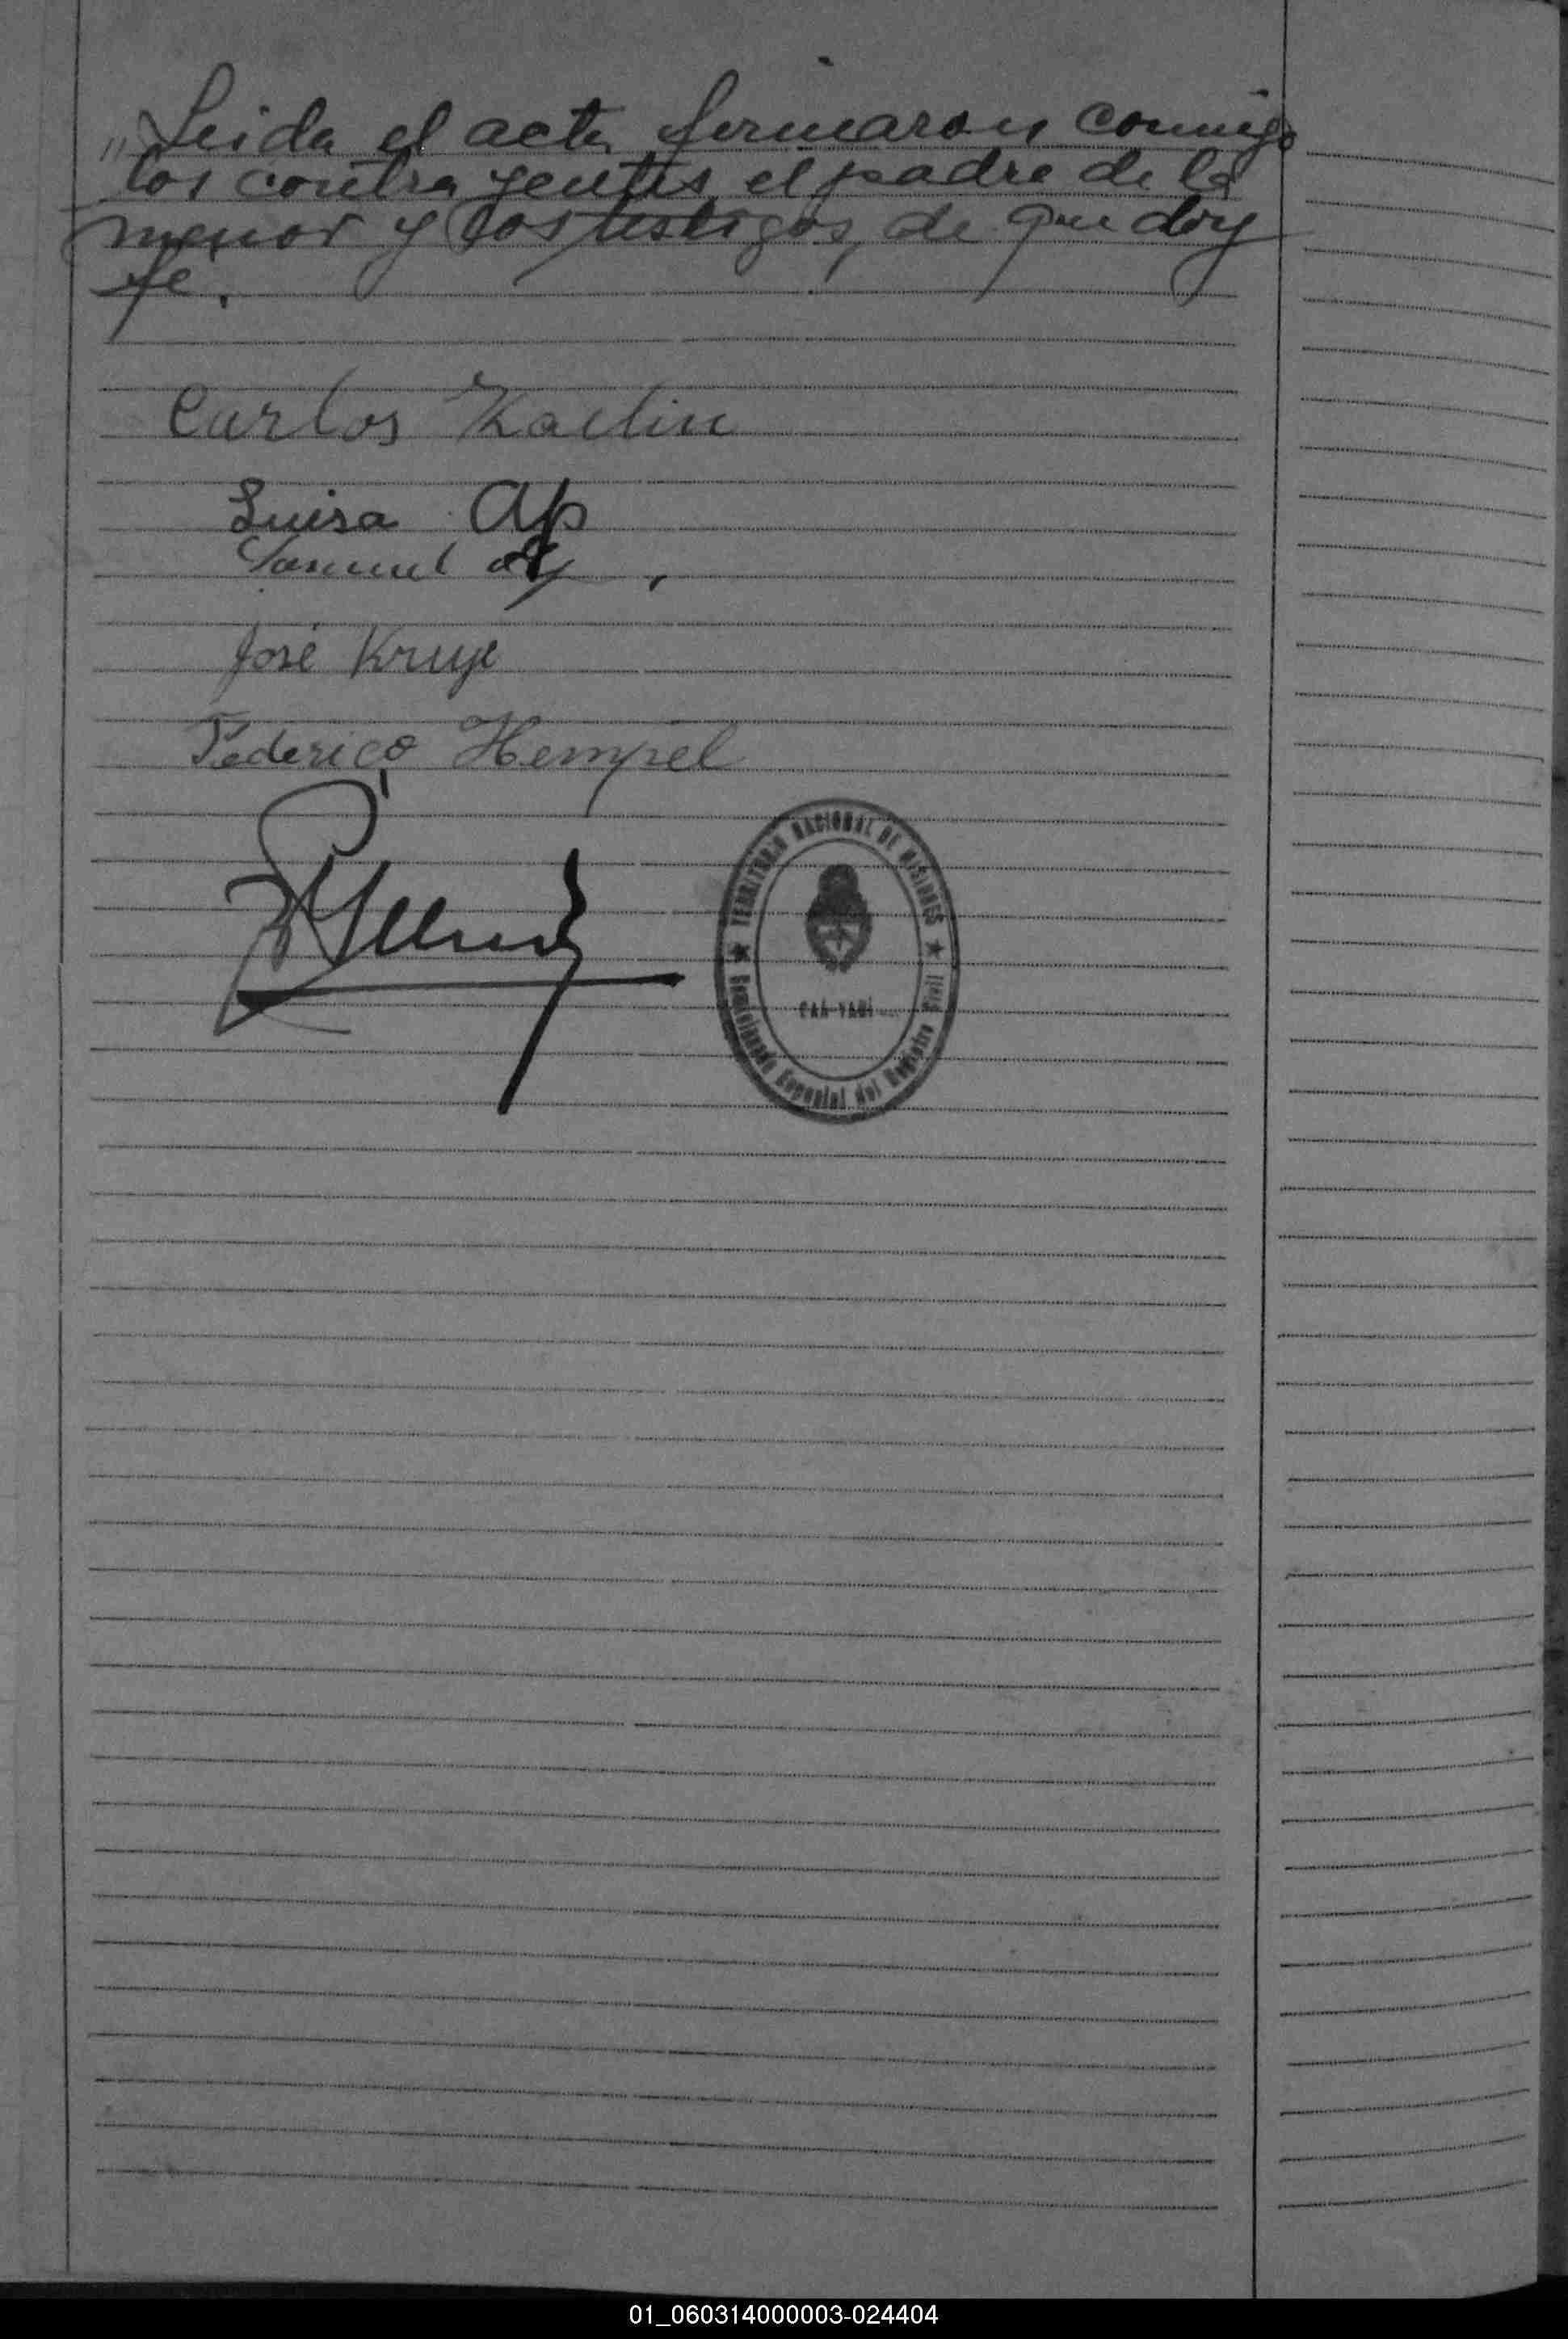 „Leida el acta firmaron conmigo
los contrayentes, el padre de la
menor y los testigos, de que doy
fe.
Carlos
Luisa Ap
Samuel Ap
José Kruje
Federico Hempel
TERRITORIO NACIONAL DE MISIONES
CAÁ-YARÍ
Comisionado Especial del Registro Civil
01_060314000003-024404